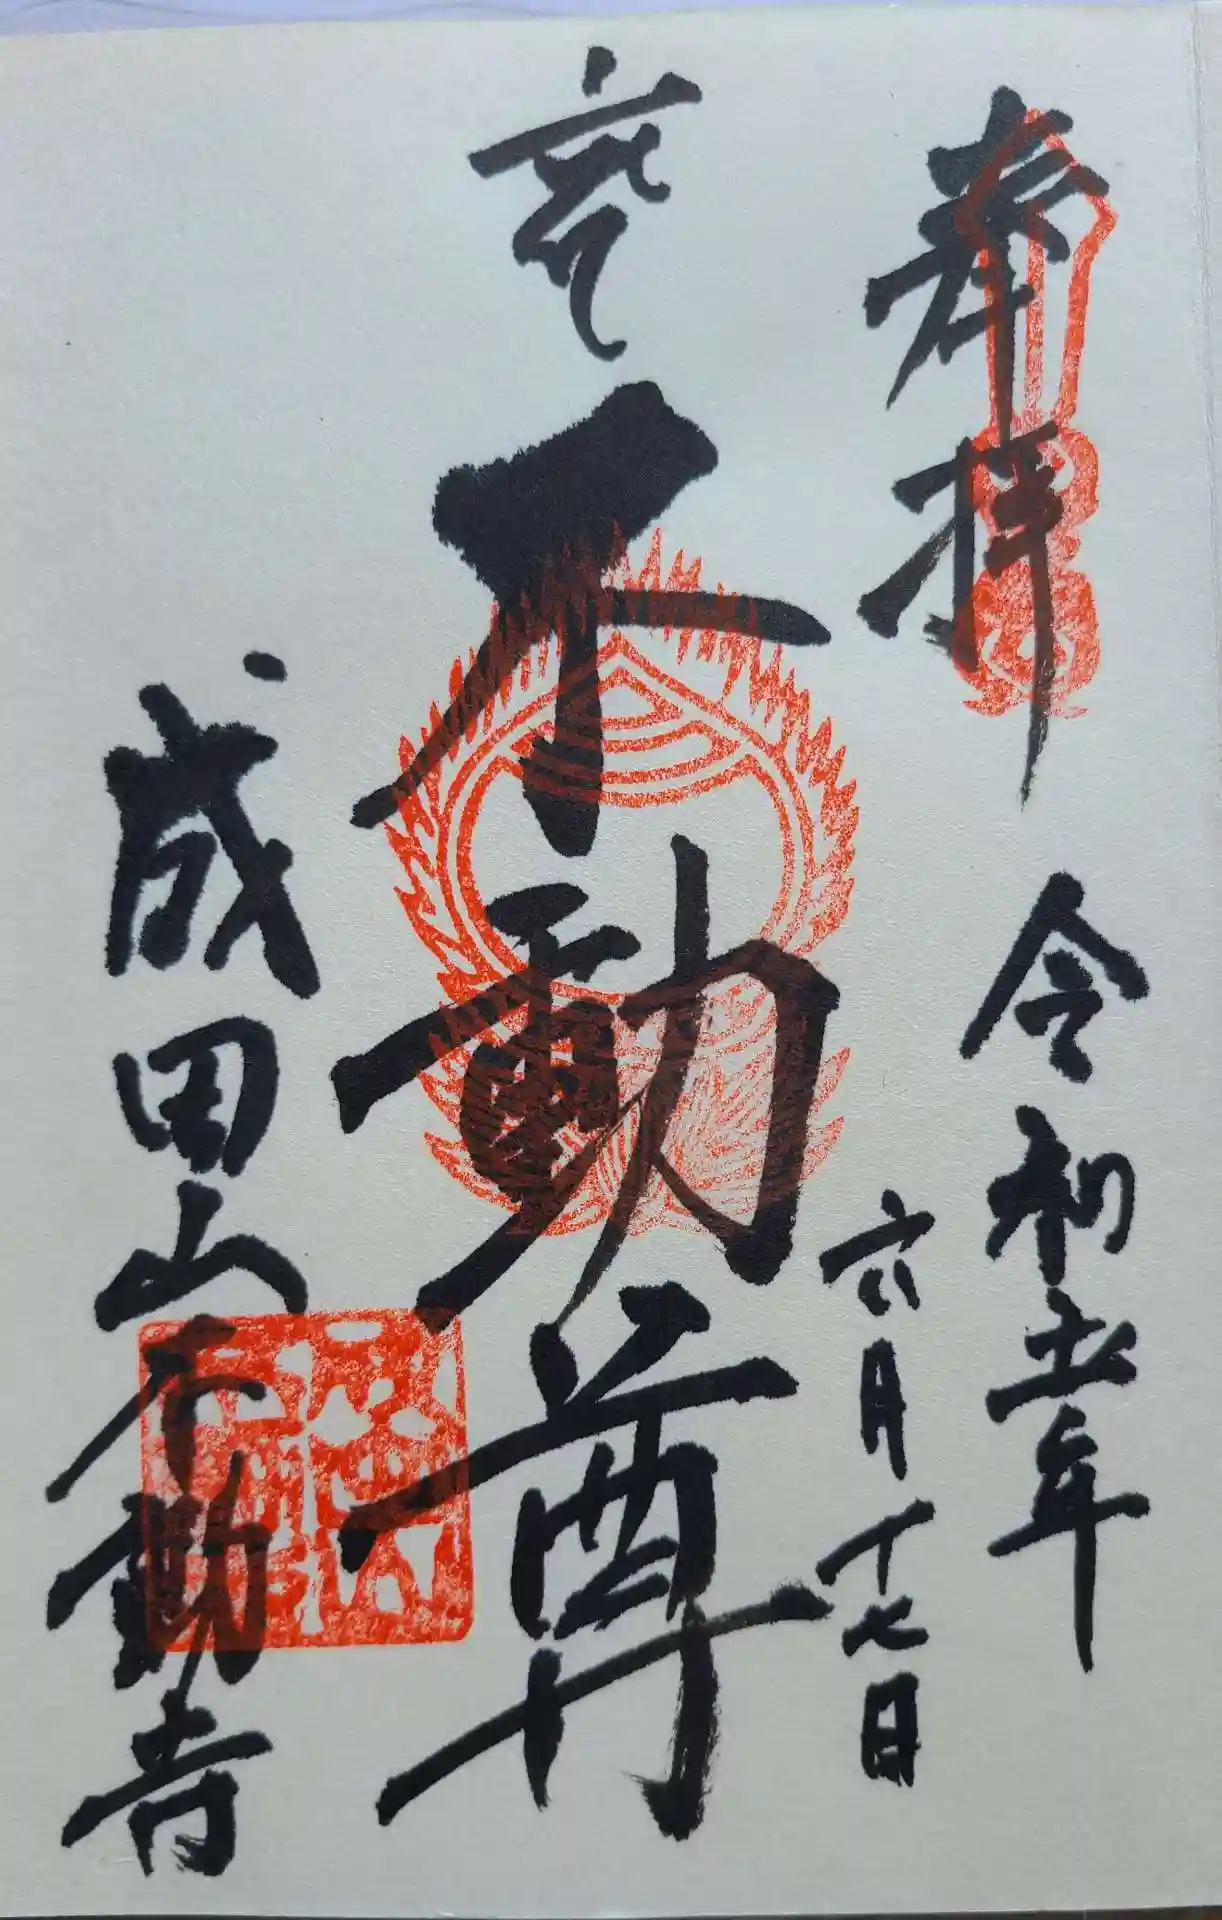 奉拝　令和五年
六月十七日
不動尊
成田山不動寺